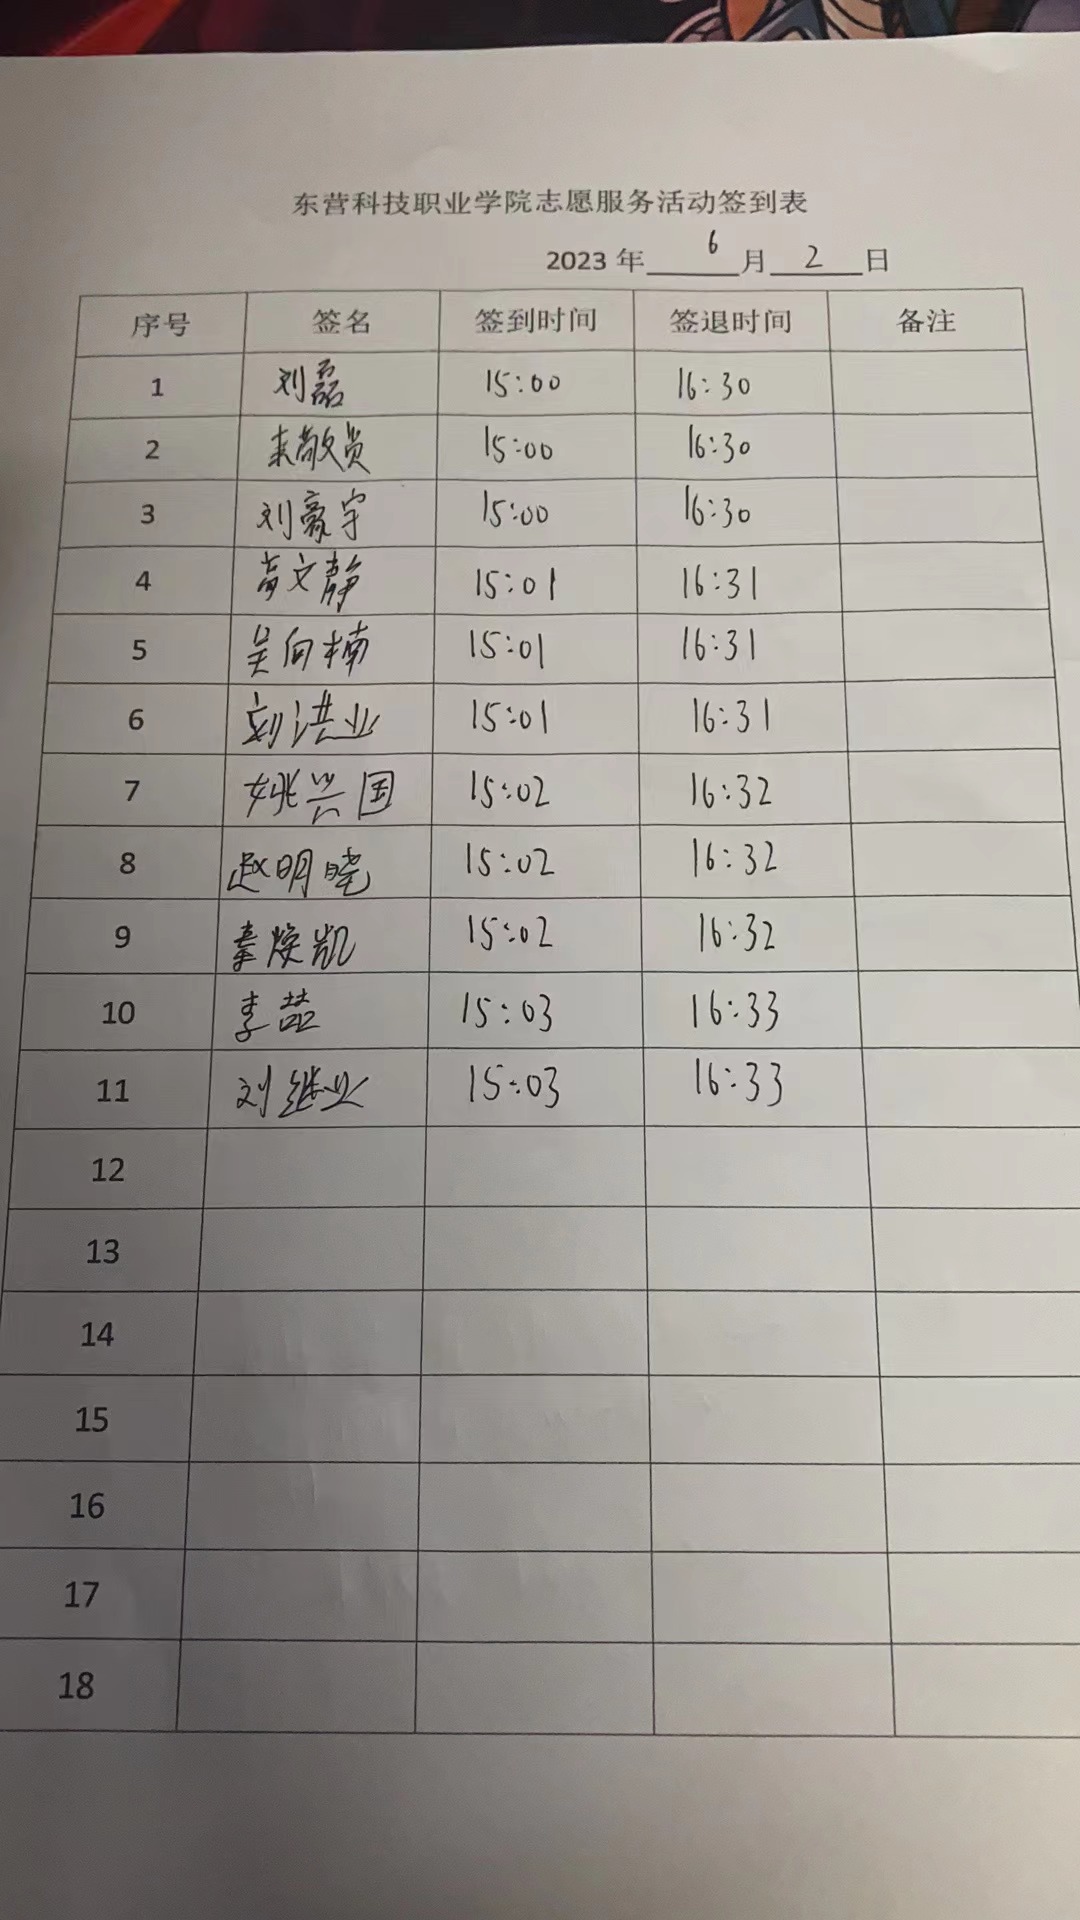 东营科技职业学院志愿服务活动签到表
2023 年 6 月 2 日
序号 签名 签到时间 签退时间 备注
1 刘磊 15:00 16:30
2 15:00 16:30
3 刘豪宇 15:00 16:30
4 文静 15:01 16:31
5 吴向楠 15:01 16:31
6 刘洪业 15:01 16:31
7 姚兴国 15:02 16:32
8 赵明晓 15:02 16:32
9 秦焕凯 15:02 16:32
10 李喆 15:03 16:33
11 刘继业 15:03 16:33
12
13
14
15
16
17
18